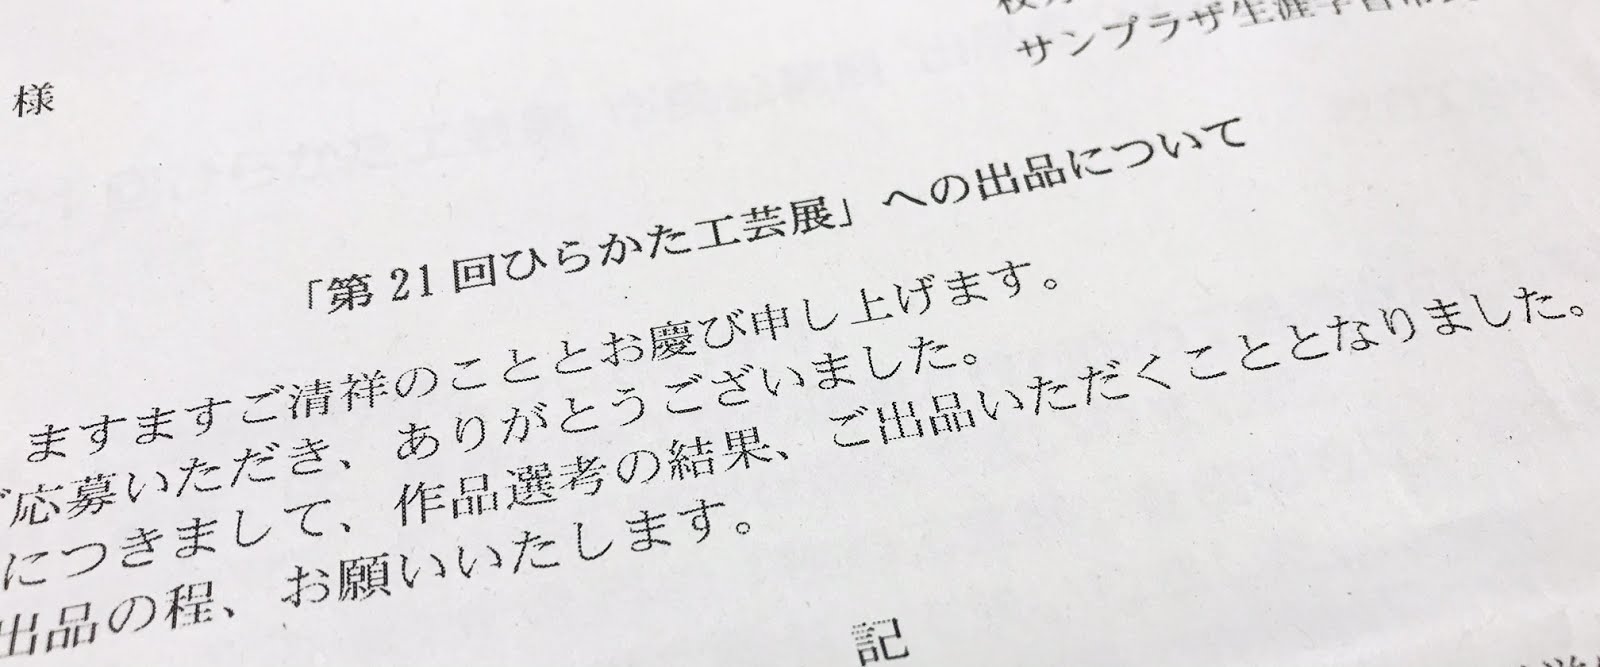 サンプラザ生涯学習市民
様
「第21回ひらかた工芸展」への出品について
ますますご清祥のこととお慶び申し上げます。
ご応募いただき、ありがとうございました。
につきまして、作品選考の結果、ご出品いただくこととなりました。
出品の程、お願いいたします。
記